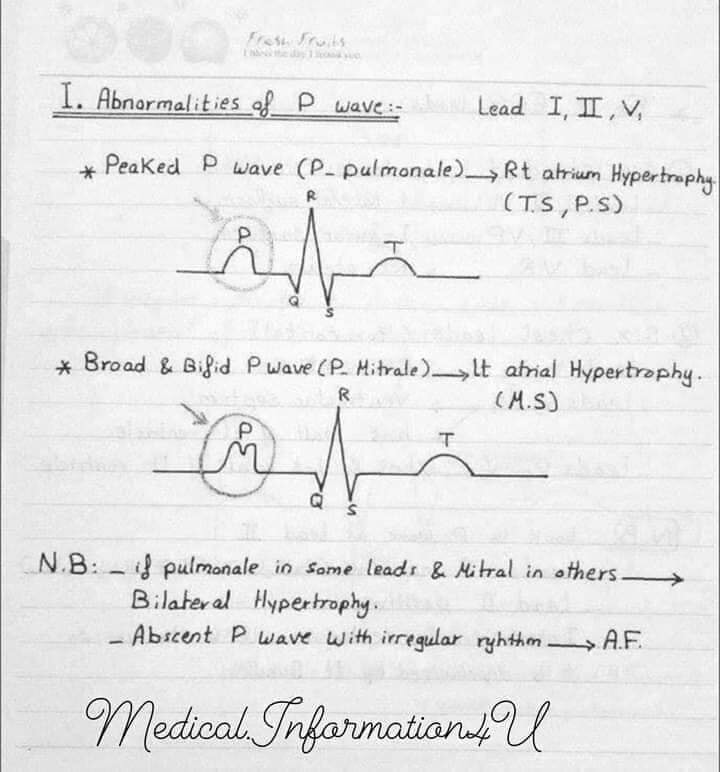 Fresh Fruits
I bless the day I found you.
I. Abnormalities of P wave:- Lead I, II, V₁
* Peaked P wave (P_ pulmonale) → Rt atrium Hypertrophy.
(T.S, P.S)
R
P
T
Q
S
* Broad & Bifid P wave (P_ Mitrale) → lt atrial Hypertrophy.
(M.S)
R
P
T
Q
S
N.B: - if pulmonale in some leads & Mitral in others →
Bilateral Hypertrophy.
- Abscent P wave with irregular ryhthm → A.F.
Medical.Information4U